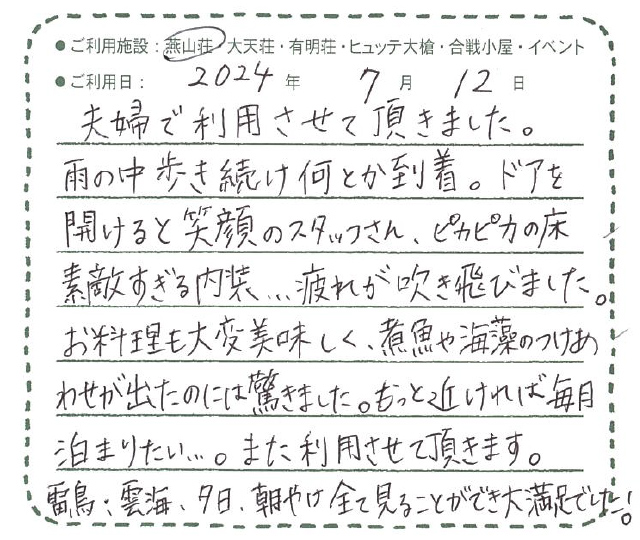 ●ご利用施設：燕山荘・大天荘・有明荘・ヒュッテ大槍・合戦小屋・イベント
●ご利用日： 2024 年 7 月 12 日
夫婦で利用させて頂きました。
雨の中歩き続け何とか到着。ドアを
開けると笑顔のスタッフさん、ピカピカの床
素敵すぎる内装...疲れが吹き飛びました。
お料理も大変美味しく、煮魚や海藻のつけあ
わせが出たのには驚きました。もっと近ければ毎月
泊まりたい...。また利用させて頂きます。
雷鳥、雲海、夕日、朝やけ全て見ることができ大満足でした!